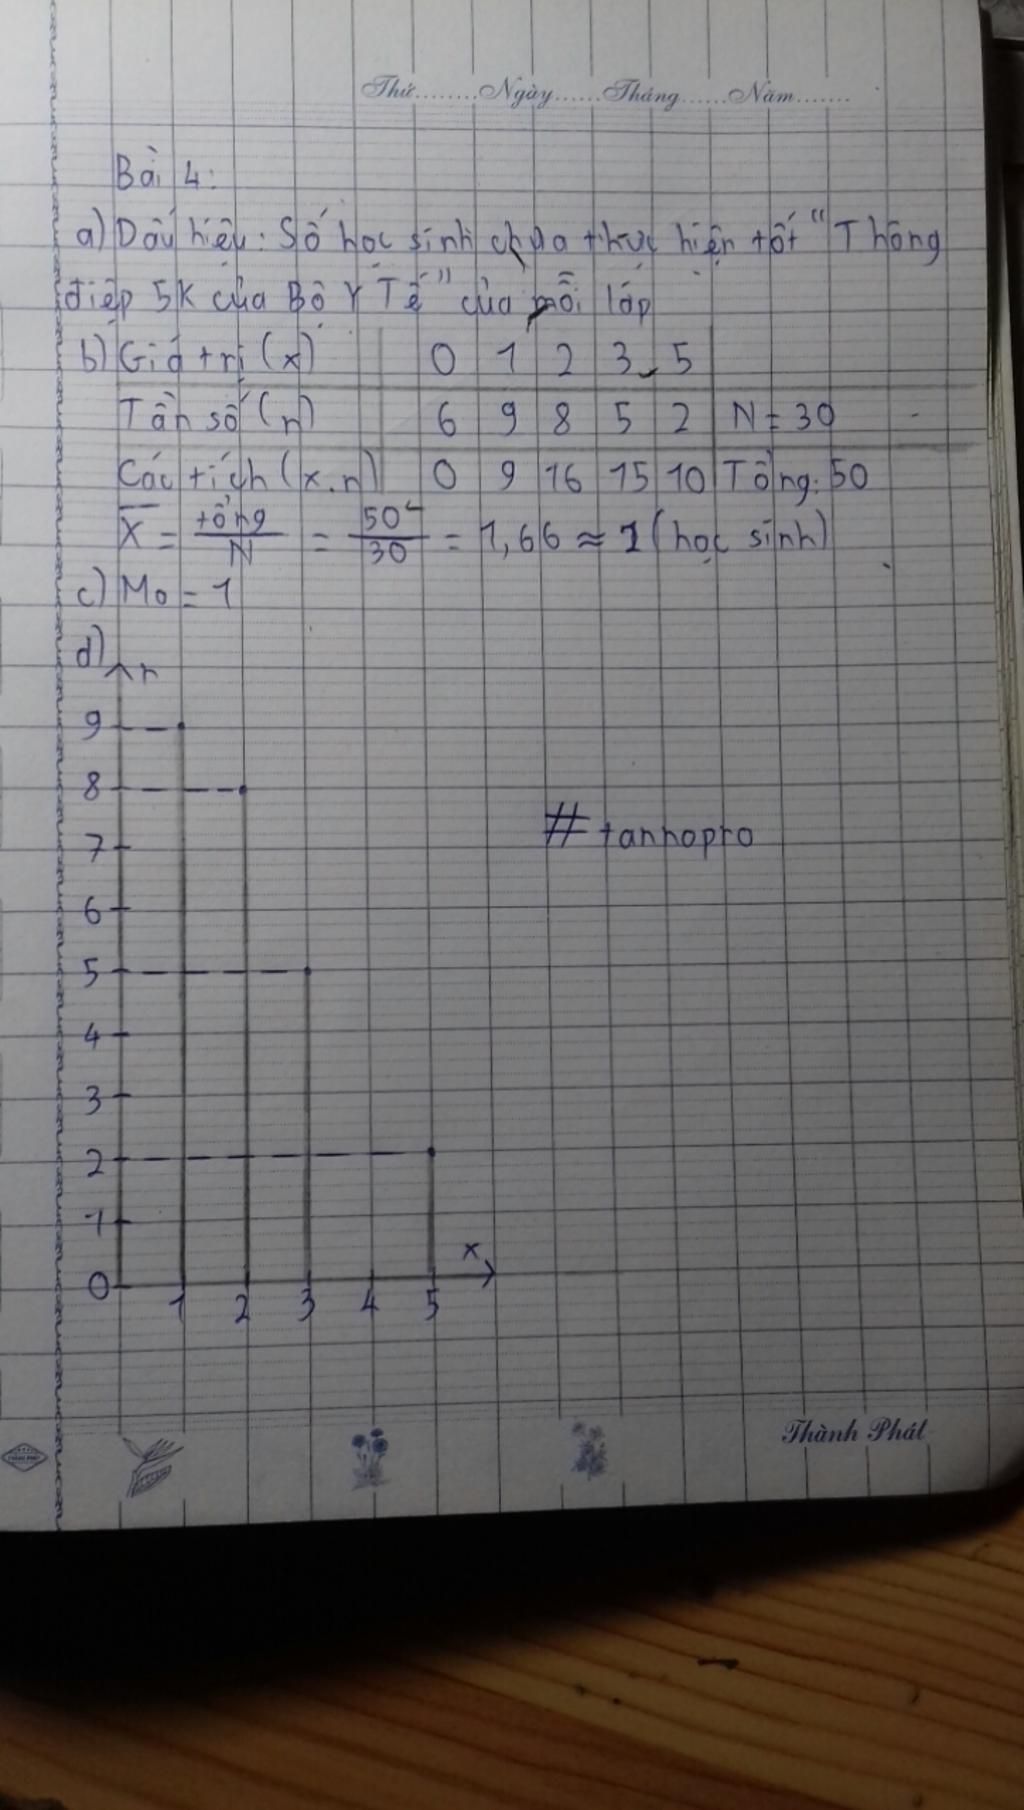 Thứ........Ngày......Tháng......Năm.......
Bài 4:
a) Dấu hiệu: Số học sinh chưa thực hiện tốt "Thông
điệp 5K của Bộ Y Tế" của mỗi lớp
b) Giá trị (x) 0 1 2 3 5
Tần số (n) 6 9 8 5 2 N = 30
Các tích (x.n) 0 9 16 15 10 Tổng: 50
X̄ = tổng/N = 50/30 = 1,66 ≈ 1 (học sinh)
c) Mo = 1
d)
n
9
8
7
# tannopro
6
5
4
3
2
1
x
0 1 2 3 4 5
Thành Phát